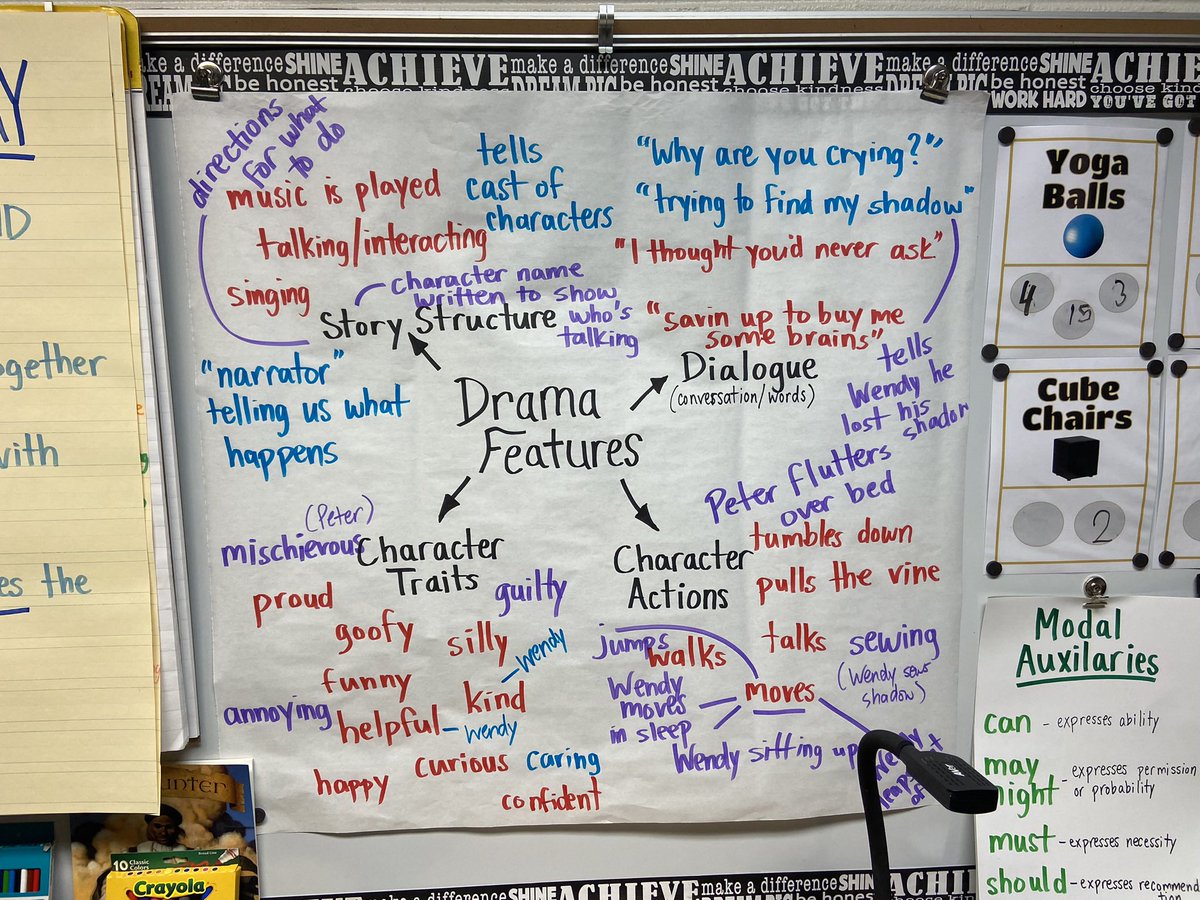 make a difference SHINE ACHIEVE make a difference SHINE ACHIEVE make a difference SHINE
DREAM BIG be honest choose kindness DREAM BIG be honest choose kindness WORK HARD YOU'VE GOT
directions
for what
to do
music is played
talking/interacting
singing
tells
cast of
characters
character name
written to show
who's
talking
Story Structure
"narrator"
telling us what
happens
"Why are you crying?"
"trying to find my shadow"
"I thought you'd never ask"
"savin up to buy me
some brains"
Dialogue
(conversation/words)
tells
Wendy he
lost his
shadow
Drama
Features
(Peter)
mischievous
Character
Traits
guilty
proud
goofy
silly
wendy
funny
kind
annoying
helpful - wendy
curious
caring
happy
confident
Character
Actions
Peter flutters
over bed
tumbles down
pulls the vine
talks
sewing
(Wendy sews
shadow)
jumps
walks
moves
Wendy
moves
in sleep
Wendy sitting up
together
with
the
Yoga
Balls
4
15
3
Cube
Chairs
2
Modal
Auxilaries
can - expresses ability
may
might - expresses permission
or probability
must - expresses necessity
should - expresses recommend
tion
10 Classic
Colors
Crayola
make a difference SHINE ACHIEVE make a difference SHINE ACHI
be honest choose kindness be honest choose kindness